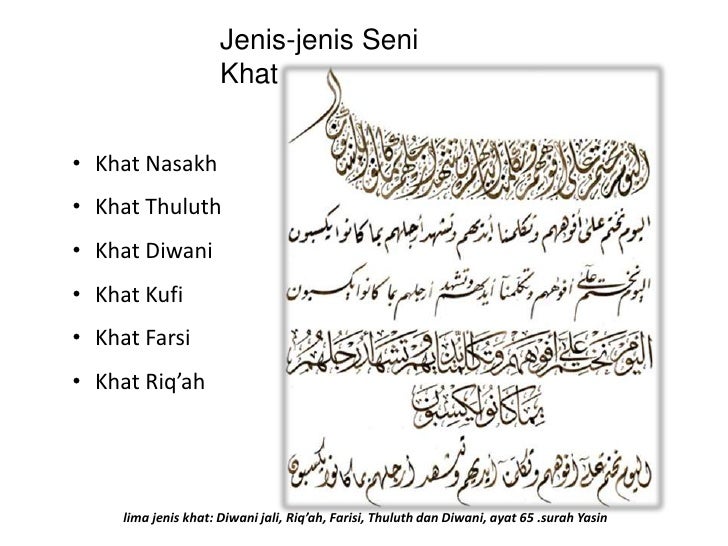 Jenis-jenis Seni
Khat
• Khat Nasakh
• Khat Thuluth
• Khat Diwani
• Khat Kufi
• Khat Farsi
• Khat Riq’ah
اليوم نختم على أفواههم وتكلمنا أيديهم وتشهد أرجلهم بما كانوا يكسبون
اليوم نختم على أفواههم وتكلمنا أيديهم وتشهد أرجلهم بما كانوا يكسبون
اليوم نختم على أفواههم وتكلمنا أيديهم وتشهد أرجلهم بما كانوا يكسبون
اليوم نختم على أفواههم وتكلمنا أيديهم وتشهد أرجلهم
بما كانوا يكسبون
اليوم نختم على أفواههم وتكلمنا أيديهم وتشهد أرجلهم بما كانوا يكسبون
lima jenis khat: Diwani jali, Riq’ah, Farisi, Thuluth dan Diwani, ayat 65 .surah Yasin